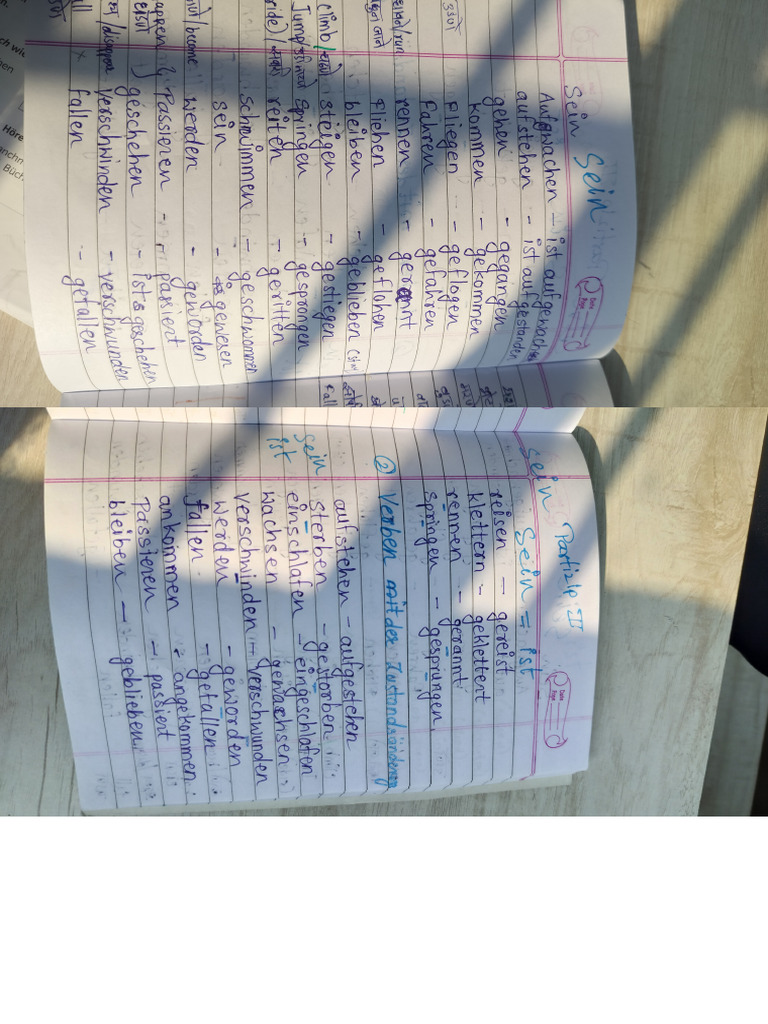 Sein
Sein
Aufwachen - ist aufgewacht
aufstehen - ist aufgestanden
gehen - gegangen
kommen - gekommen
Fliegen - geflogen
Fahren - gefahren
rennen - gerannt
Fliehen - geflohen
bleiben - geblieben
climb steigen - gestiegen
Jump springen - gesprongen
ride) reiten - geritten
Schwimmen - geschwommen
sein - gewesen
become werden - geworden
passieren - passiert
geschehen - ist geschehen
verschwinden - verschwunden
fallen - gefallen
Partizip II
Sein Sein = ist
reisen - gereist
klettern - geklettert
rennen - gerannt
springen - gesprungen
② Verben mit der Zustandsänderung
aufstehen - aufgestehen
sterben - gestorben
sein einschlafen - eingeschlafen
ist wachsen - gewachsen
verschwinden - verschwunden
werden - geworden
fallen - gefallen
ankommen - angekommen
Passieren - passiert
bleiben - geblieben